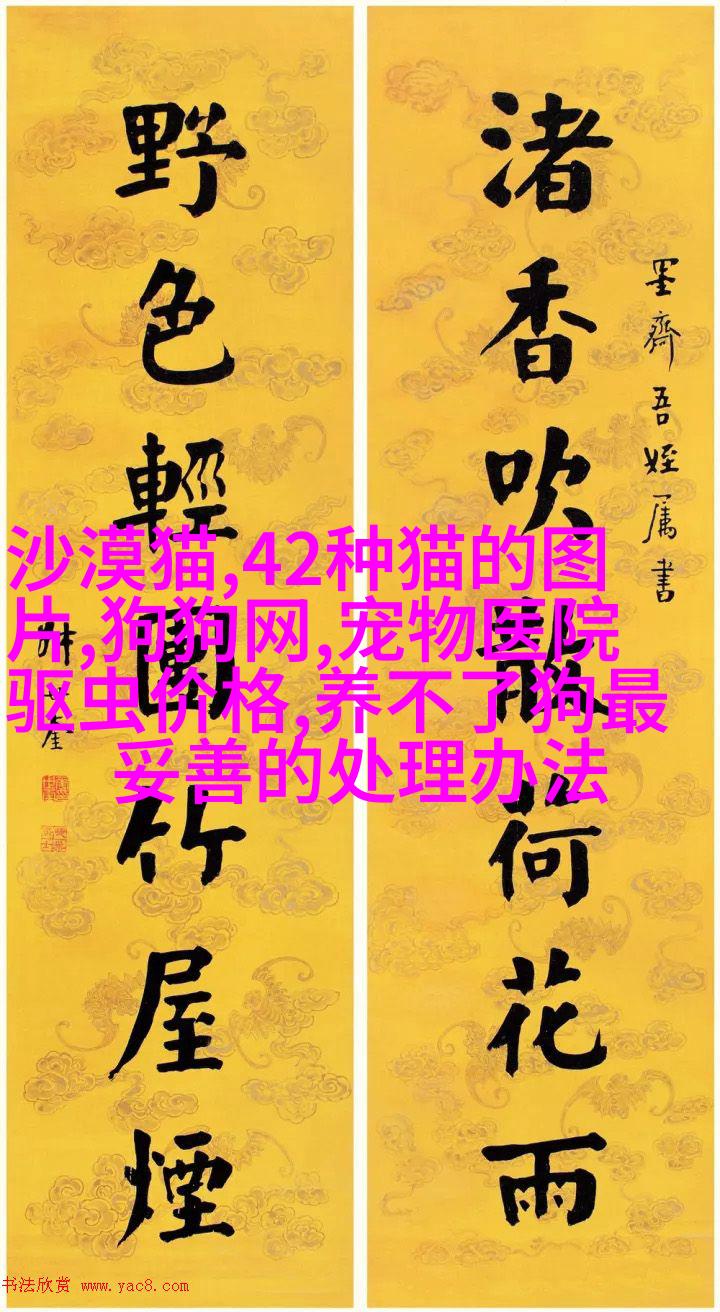 墨齊吾姪属書
渚香吹散荷花雨
野色輕團竹屋煙
沙漠猫,42种猫的图
片,狗狗网,宠物医院
驱虫价格,养不了狗最
妥善的处理办法
书法欣赏 www.yac8.com